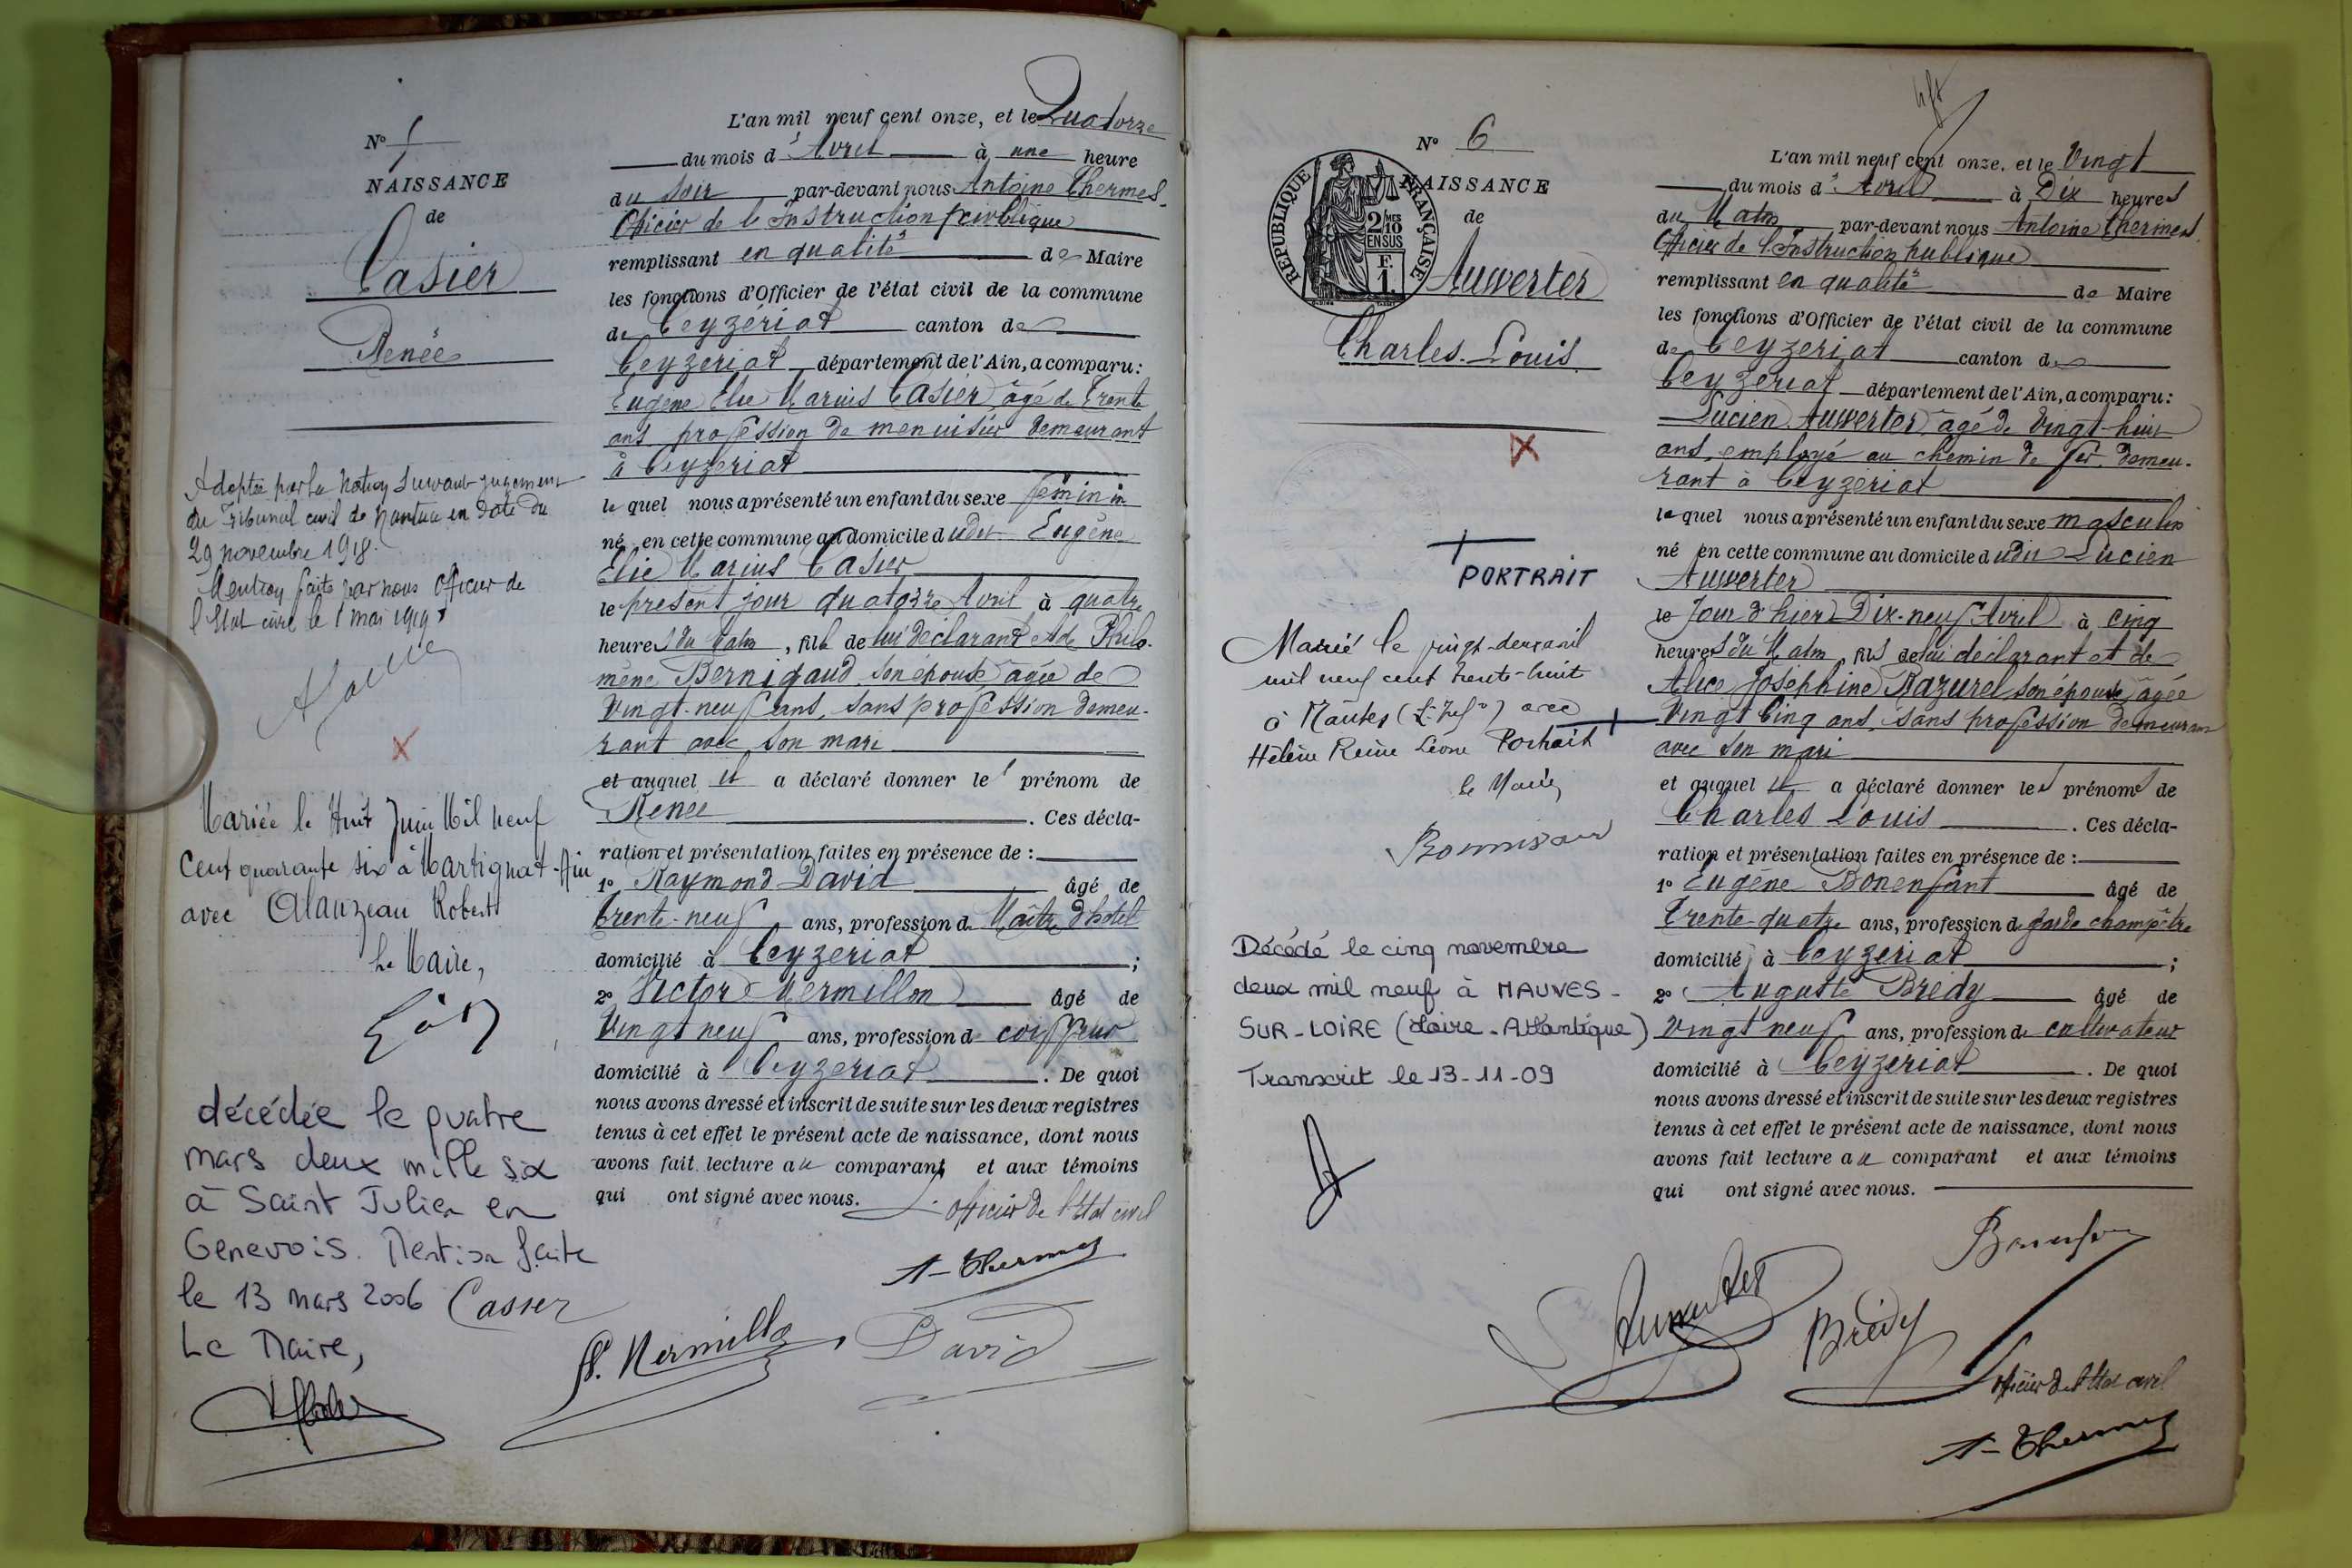 N° 5
NAISSANCE
de
Casier
Renée
Adoptée par la Nation suivant jugement
du Tribunal civil de Nantua en date du
29 novembre 1918.
Mention faite par nous Officier de
l'Etat civil le 1 mai 1919
Mariée le Huit Juin Mil neuf
Cent quarante six à Martignat-Ain
avec Alauzeau Robert
Le Maire,
décédée le quatre
mars deux mille six
à Saint Julien en
Genevois. Mention faite
le 13 mars 2006
Le Maire,
L'an mil neuf cent onze, et le Quatorze
du mois d'Avril à une heure
du soir par-devant nous Antoine Thermes
Officier de l'Instruction publique
remplissant en qualité de Maire
les fonctions d'Officier de l'état civil de la commune
de Ceyzeriat canton de
Ceyzeriat département de l'Ain, a comparu:
Eugène Elie Marius Casier âgé de Trente
ans profession de menuisier demeurant
à Ceyzeriat
le quel nous a présenté un enfant du sexe féminin
né en cette commune au domicile dudit Eugène
Elie Marius Casier
le présent jour quatorze Avril à quatre
heures du Matin, fille de lui déclarant et de Philo-
mène Bernigaud son épouse âgée de
Vingt-neuf ans, sans profession demeu-
rant avec son mari
et auquel il a déclaré donner le prénom de
Renée . Ces décla-
ration et présentation faites en présence de :
1° Raymond David âgé de
trente-neuf ans, profession de Maître d'hôtel
domicilié à Ceyzeriat ;
2° Victor Mermillon âgé de
Vingt neuf ans, profession de coiffeur
domicilié à Ceyzeriat . De quoi
nous avons dressé et inscrit de suite sur les deux registres
tenus à cet effet le présent acte de naissance, dont nous
avons fait lecture au comparant et aux témoins
qui ont signé avec nous. L'officier de l'Etat civil
A. Thermes
Casier
V. Mermillon
David
N° 6
NAISSANCE
de
REPUBLIQUE FRANÇAISE
2/10 MES
EN SUS
F.
1.
Auwerter
Charles. Louis.
PORTRAIT
Marié le vingt-deux avril
mil neuf cent trente-huit
à Nantes (L. Infre) avec
Hélène Reine Léone Portrait
Le Maire,
Décédé le cinq novembre
deux mil neuf à MAUVES-
SUR-LOIRE (Loire-Atlantique)
Transcrit le 13-11-09
L'an mil neuf cent onze, et le Vingt
du mois d'Avril à Dix heures
du Matin par-devant nous Antoine Thermes
Officier de l'Instruction publique
remplissant en qualité de Maire
les fonctions d'Officier de l'état civil de la commune
de Ceyzeriat canton de
Ceyzeriat département de l'Ain, a comparu:
Lucien Auwerter âgé de Vingt-huit
ans, employé au chemin de fer, demeu-
rant à Ceyzeriat
le quel nous a présenté un enfant du sexe masculin
né en cette commune au domicile dudit Lucien
Auwerter
le Jour d'hier Dix-neuf Avril à cinq
heures du Matin, fils de lui déclarant et de
Alice Joséphine Razurel son épouse âgée
Vingt Cinq ans, sans profession demeurant
avec son mari
et auquel il a déclaré donner les prénoms de
Charles Louis . Ces décla-
ration et présentation faites en présence de :
1° Eugène Bonenfant âgé de
Trente-quatre ans, profession de garde champêtre
domicilié à Ceyzeriat ;
2° Auguste Brédy âgé de
Vingt neuf ans, profession de cultivateur
domicilié à Ceyzeriat . De quoi
nous avons dressé et inscrit de suite sur les deux registres
tenus à cet effet le présent acte de naissance, dont nous
avons fait lecture au comparant et aux témoins
qui ont signé avec nous.
Auwerter
Brédy
L'officier de l'Etat civil
A. Thermes